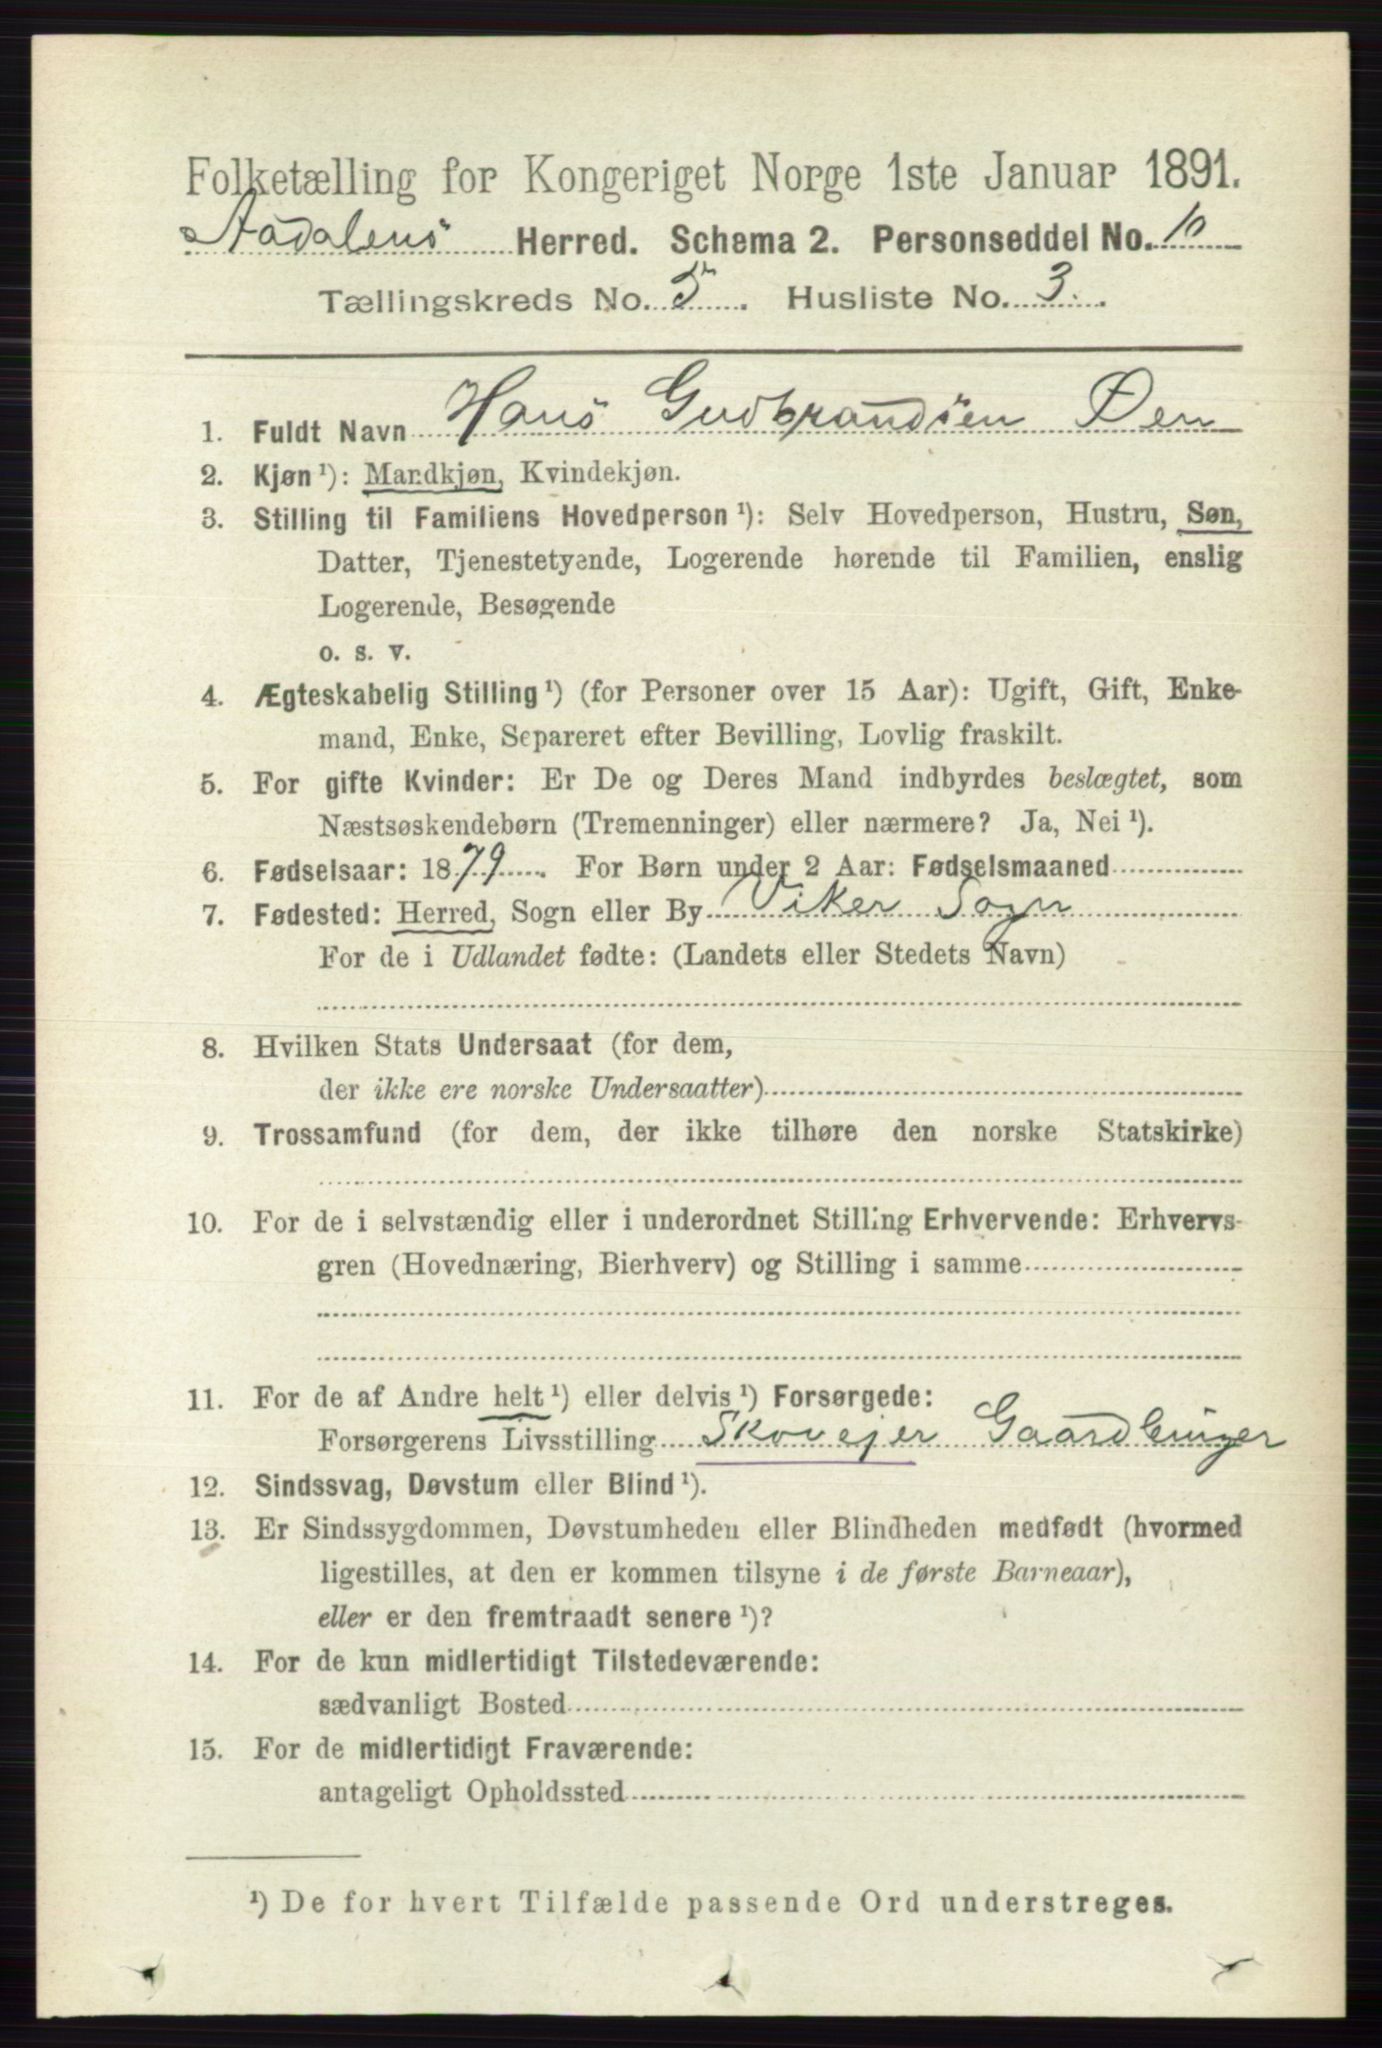 Folketælling for Kongeriget Norge 1ste Januar 1891.
Aadalens Herred. Schema 2. Personseddel No. 10
Tællingskreds No. 5. Husliste No. 3.
1. Fuldt Navn Hans Gudbrandsen Øen
2. Kjøn ¹): Mandkjøn, Kvindekjøn.
3. Stilling til Familiens Hovedperson ¹): Selv Hovedperson, Hustru, Søn,
Datter, Tjenestetyende, Logerende hørende til Familien, enslig
Logerende, Besøgende
o. s. v.
4. Ægteskabelig Stilling ¹) (for Personer over 15 Aar): Ugift, Gift, Enke-
mand, Enke, Separeret efter Bevilling, Lovlig fraskilt.
5. For gifte Kvinder: Er De og Deres Mand indbyrdes beslægtet, som
Næstsøskendebørn (Tremenninger) eller nærmere? Ja, Nei ¹).
6. Fødselsaar: 1879. For Børn under 2 Aar: Fødselsmaaned
7. Fødested: Herred, Sogn eller By Viker Sogn
For de i Udlandet fødte: (Landets eller Stedets Navn)
8. Hvilken Stats Undersaat (for dem,
der ikke ere norske Undersaatter)
9. Trossamfund (for dem, der ikke tilhøre den norske Statskirke)
10. For de i selvstændig eller i underordnet Stilling Erhvervende: Erhvervs-
gren (Hovednæring, Bierhverv) og Stilling i samme
11. For de af Andre helt ¹) eller delvis ¹) Forsørgede:
Forsørgerens Livsstilling Skovejer Gaardbruger
12. Sindssvag, Døvstum eller Blind ¹).
13. Er Sindssygdommen, Døvstumheden eller Blindheden medfødt (hvormed
ligestilles, at den er kommen tilsyne i de første Barneaar),
eller er den fremtraadt senere ¹)?
14. For de kun midlertidigt Tilstedeværende:
sædvanligt Bosted
15. For de midlertidigt Fraværende:
antageligt Opholdssted
¹) De for hvert Tilfælde passende Ord understreges.